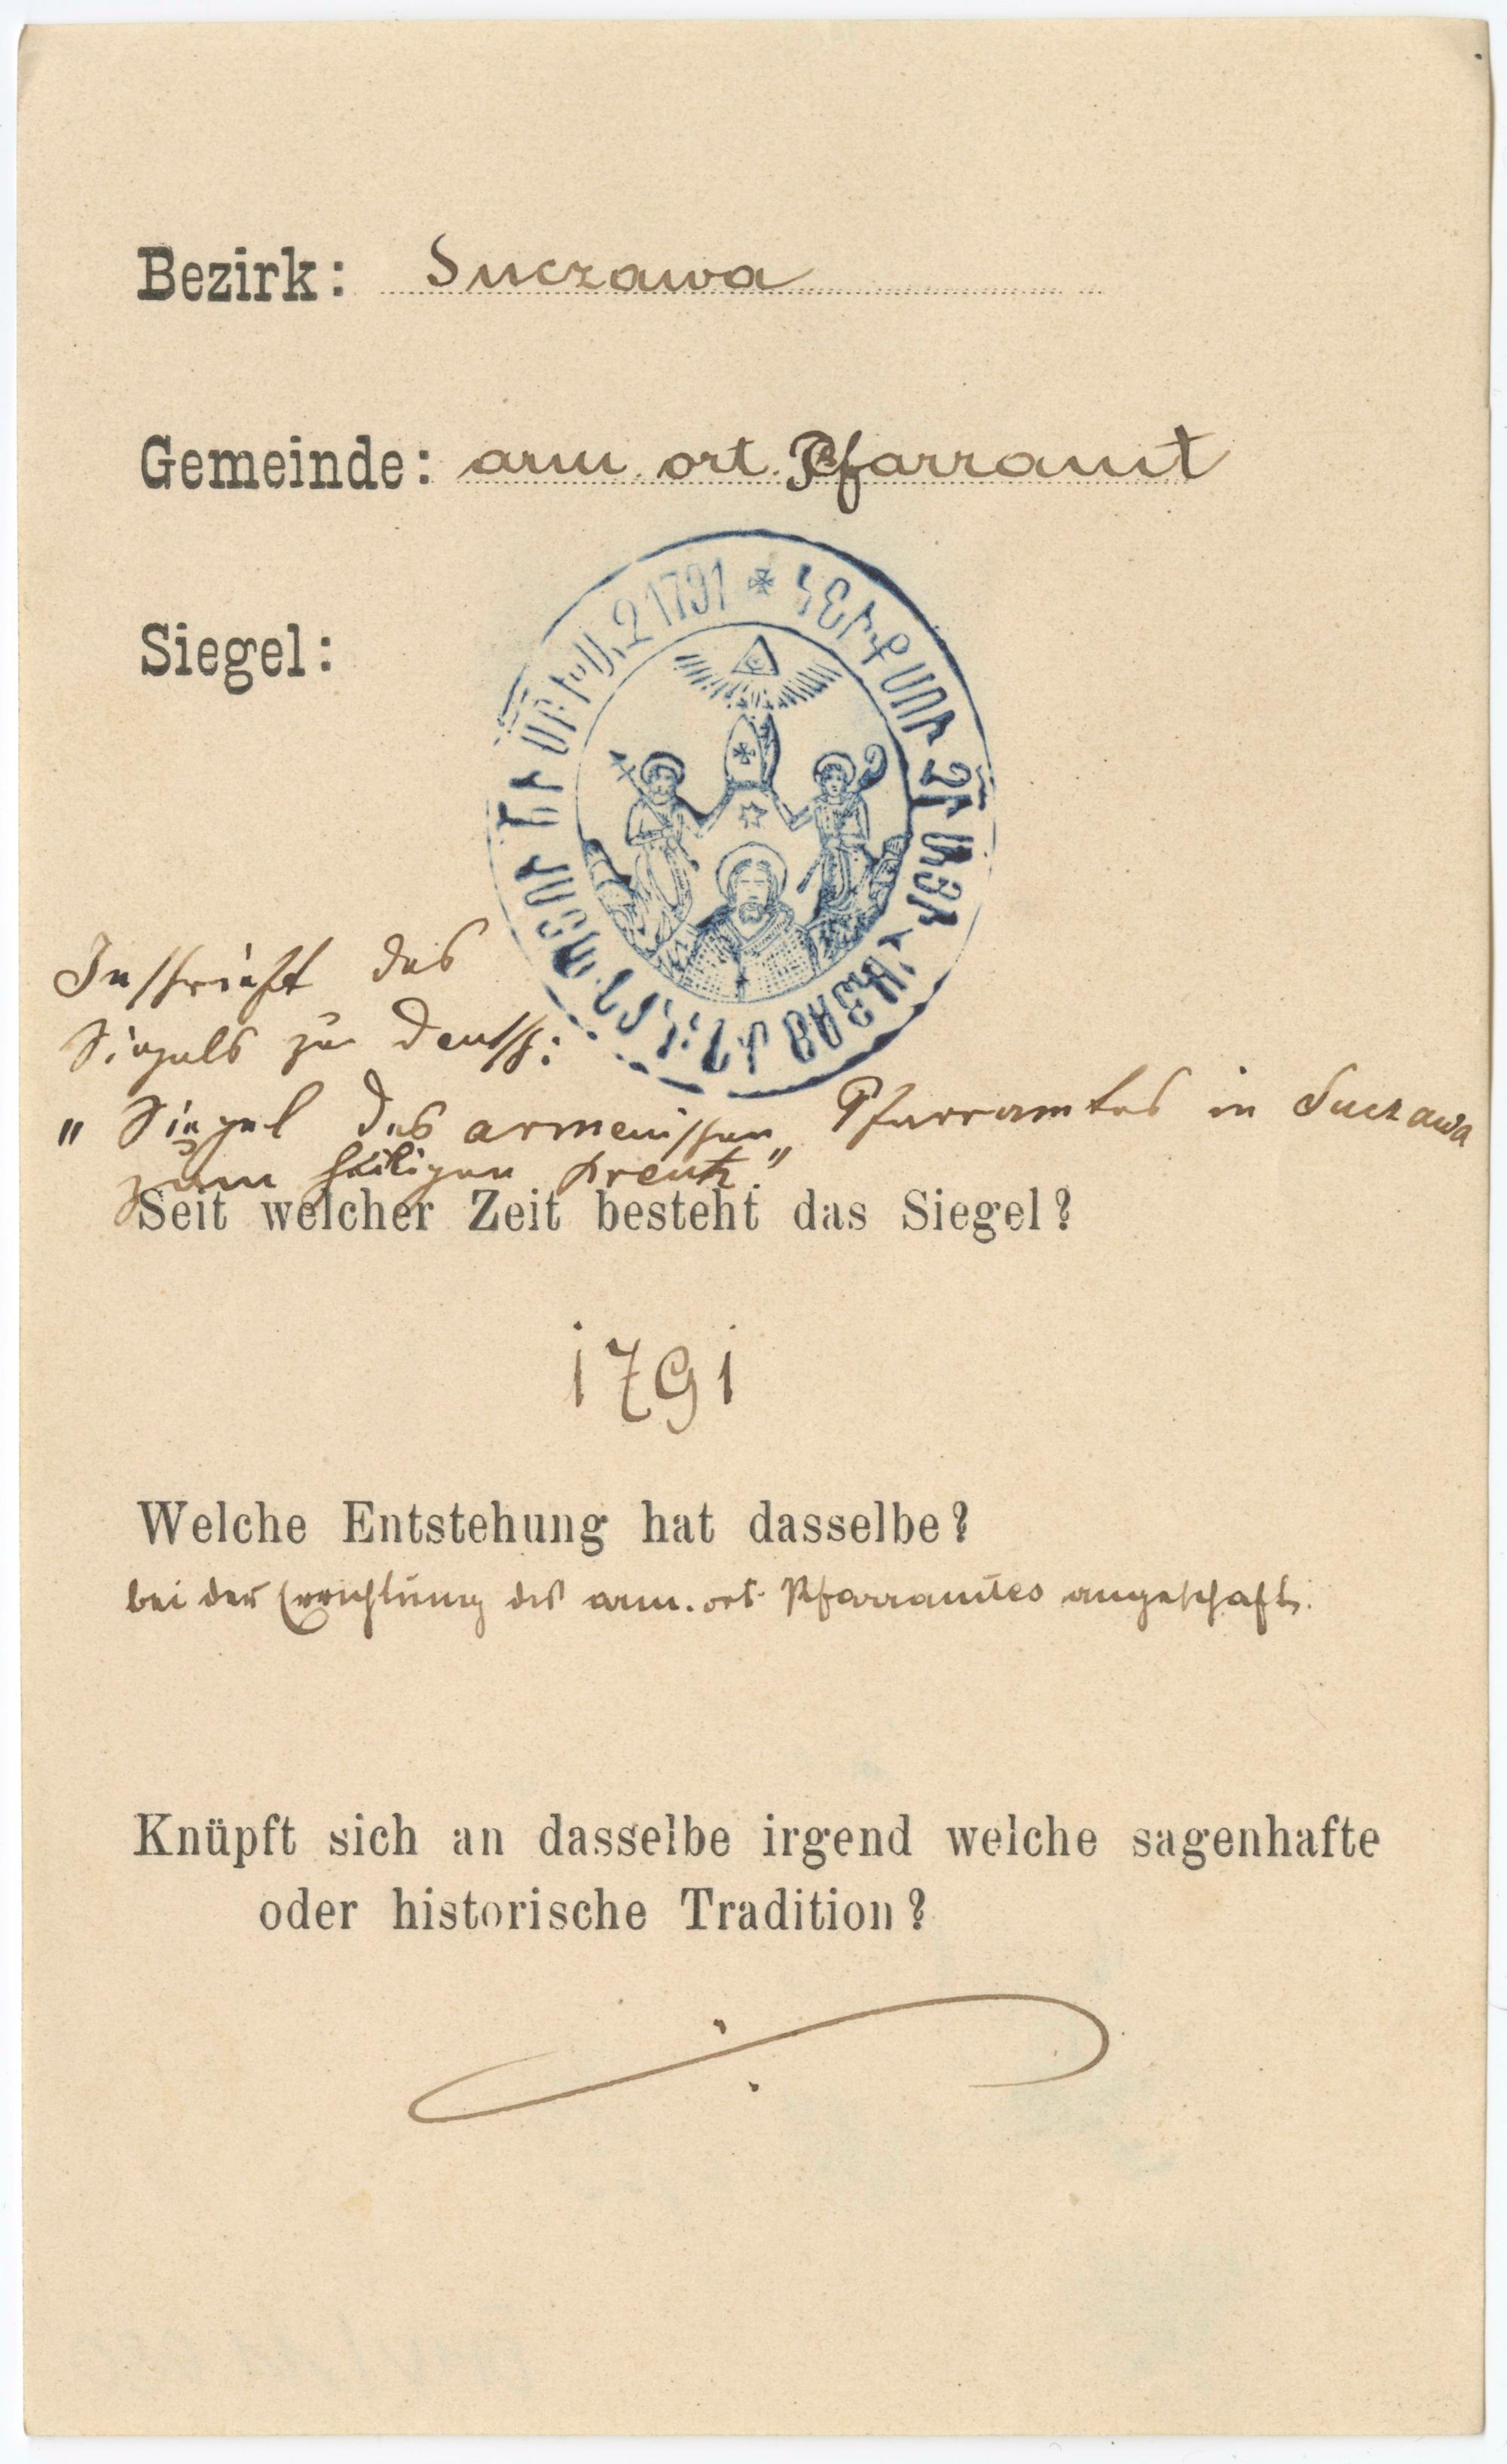 Bezirk: Suczawa
Gemeinde: arm. ort. Pfarramt
Siegel:
1791
Inschrift des
Siegels zu Deutsch:
„Siegel des armenischen Pfarramtes in Suczawa
zum heiligen Kreutz."
Seit welcher Zeit besteht das Siegel?
1791
Welche Entstehung hat dasselbe?
bei der Errichtung des arm. ort. Pfarramtes angeschafft.
Knüpft sich an dasselbe irgend welche sagenhafte
oder historische Tradition?